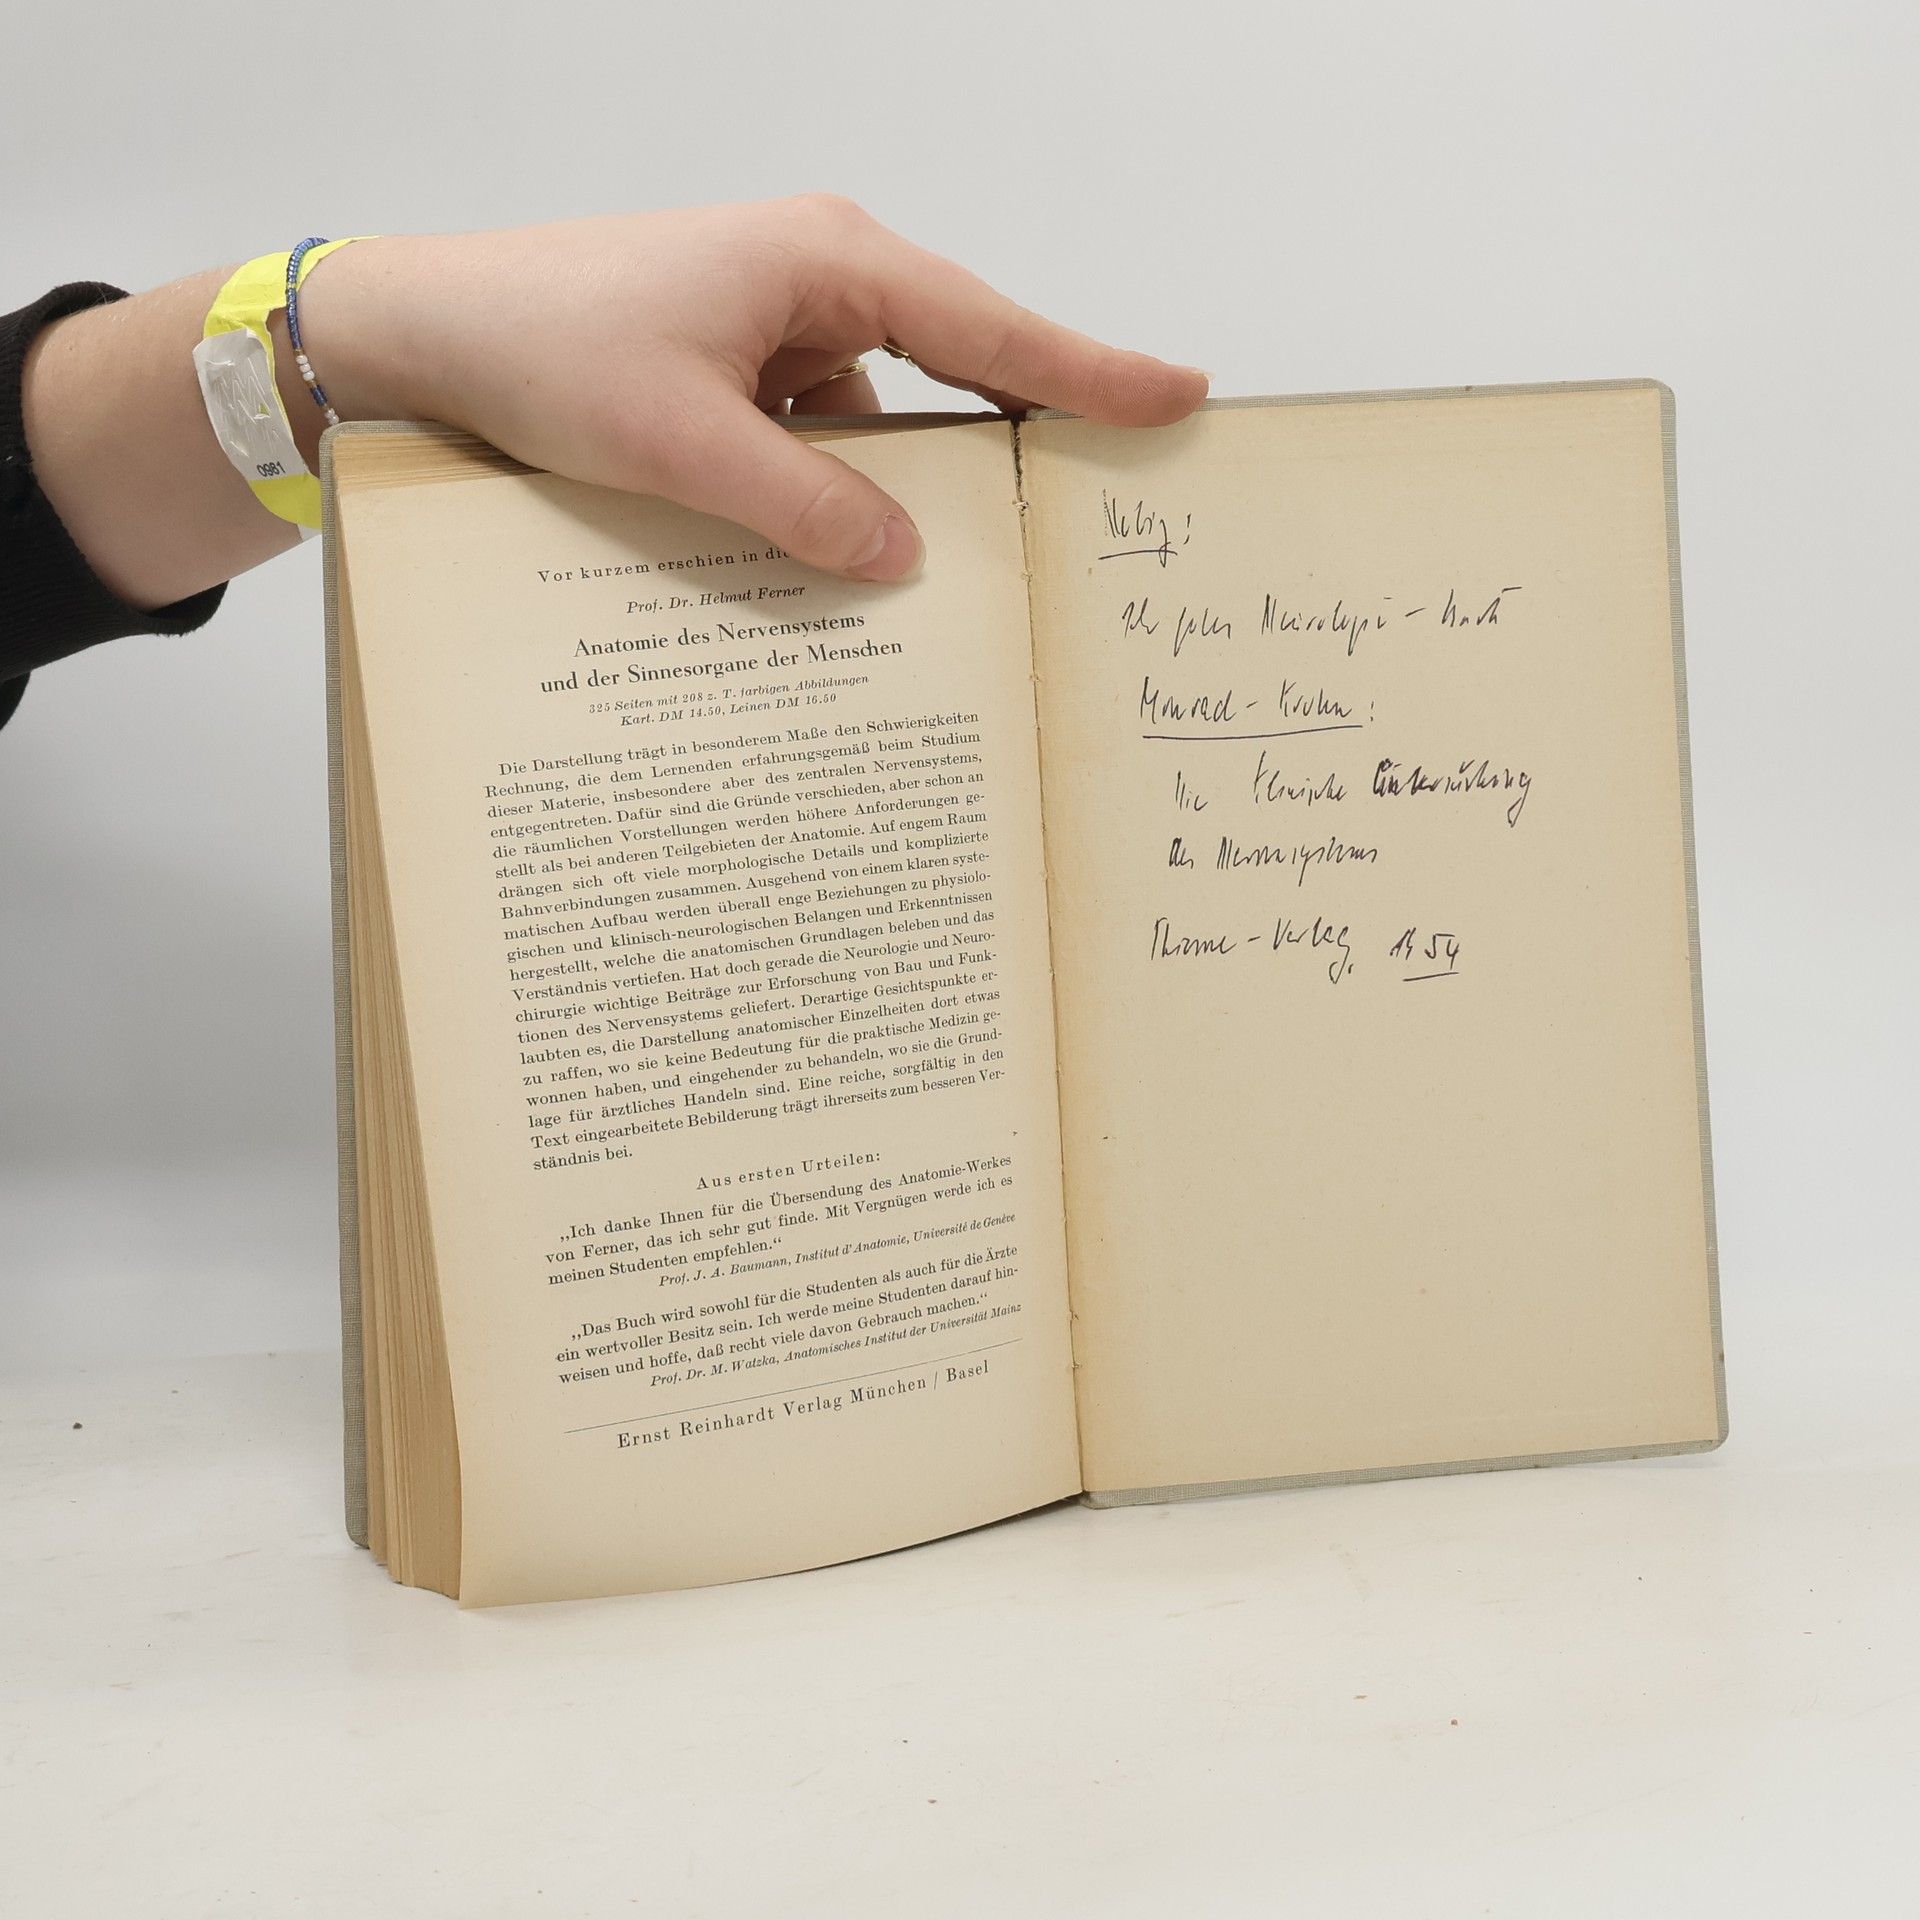 0981
Vor kurzem erschien in
Prof. Dr. Helmut Ferner
Anatomie des Nervensystems
und der Sinnesorgane der Menschen
325 Seiten mit 208 z. T. farbigen Abbildungen
Kart. DM 14.50, Leinen DM 16.50
Die Darstellung trägt in besonderem Maße den Schwierigkeiten
Rechnung, die dem Lernenden erfahrungsgemäß beim Studium
dieser Materie, insbesondere aber des zentralen Nervensystems,
entgegentreten. Dafür sind die Gründe verschieden, aber schon an
die räumlichen Vorstellungen werden höhere Anforderungen ge-
stellt als bei anderen Teilgebieten der Anatomie. Auf engem Raum
drängen sich oft viele morphologische Details und komplizierte
Bahnverbindungen zusammen. Ausgehend von einem klaren syste-
matischen Aufbau werden überall enge Beziehungen zu physiolo-
gischen und klinisch-neurologischen Belangen und Erkenntnissen
hergestellt, welche die anatomischen Grundlagen beleben und das
Verständnis vertiefen. Hat doch gerade die Neurologie und Neuro-
chirurgie wichtige Beiträge zur Erforschung von Bau und Funk-
tionen des Nervensystems geliefert. Derartige Gesichtspunkte er-
laubten es, die Darstellung anatomischer Einzelheiten dort etwas
zu raffen, wo sie keine Bedeutung für die praktische Medizin ge-
wonnen haben, und eingehender zu behandeln, wo sie die Grund-
lage für ärztliches Handeln sind. Eine reiche, sorgfältig in den
Text eingearbeitete Bebilderung trägt ihrerseits zum besseren Ver-
ständnis bei.
Aus ersten Urteilen:
„Ich danke Ihnen für die Übersendung des Anatomie-Werkes
von Ferner, das ich sehr gut finde. Mit Vergnügen werde ich es
meinen Studenten empfehlen.“
Prof. J. A. Baumann, Institut d'Anatomie, Université de Genève
„Das Buch wird sowohl für die Studenten als auch für die Ärzte
ein wertvoller Besitz sein. Ich werde meine Studenten darauf hin-
weisen und hoffe, daß recht viele davon Gebrauch machen.“
Prof. Dr. M. Watzka, Anatomisches Institut der Universität Mainz
Ernst Reinhardt Verlag München / Basel
Neurologie -
Monrad - Krohn:
Die klinische Untersuchung
des Nervensystems
Thieme - Verlag, 1954